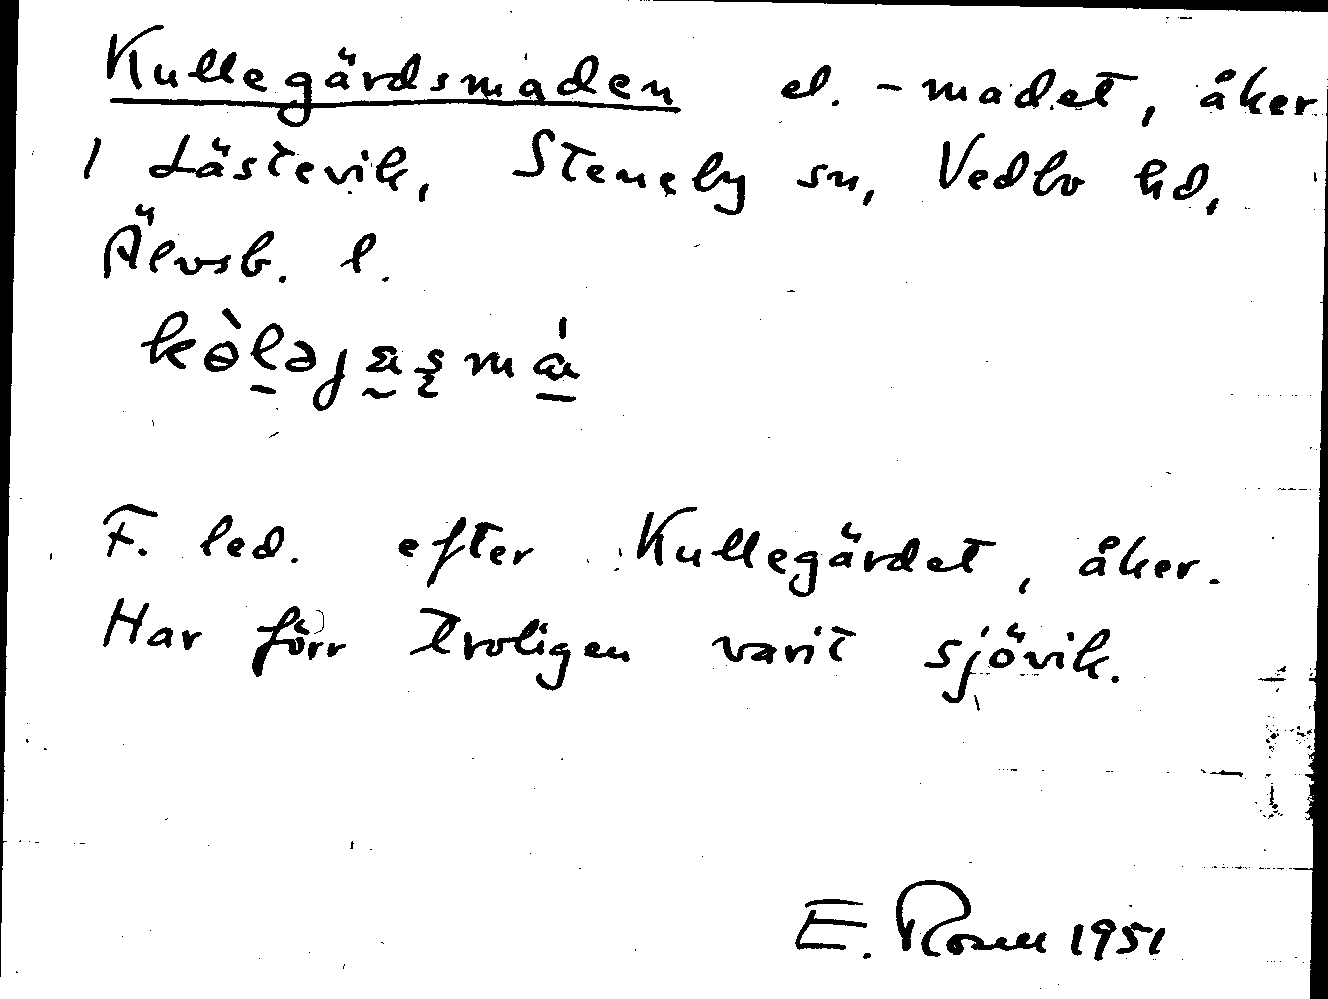 Kullegärdsmaden el. -madet, åker
i Låstevik, Steneby sn, Vedbo hd,
Älvsb. l.
F. led. efter Kullegärdet, åker.
Har förr troligen varit sjövik.
E. Rosell 1951